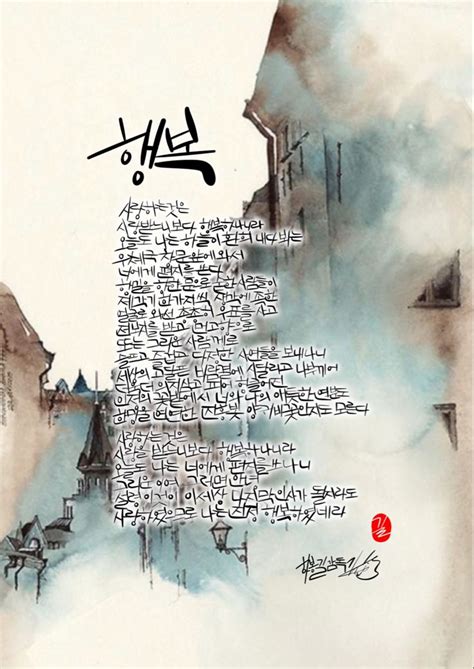 행복
사랑하는것은
사랑받느니보다 행복하나니라
오늘도 나는 하늘이 환히 내다뵈는
우체국 창문앞에 와서
너에게 편지를 쓴다
행길을 향한 문으로 숱한 사람들이
제각기 한가지씩 생각에 족한
얼굴로 와선 총총히 우표를 사고
전보지를 받고 먼 고향으로
또는 그리운 사람께로
슬프고 즐겁고 다정한 사연들을 보내나니
세상의 고달픈 바람결에 시달리고 나부끼어
더욱더 의지삼고 피어 헝클어진
인정의 꽃밭에서 너와 나의 애틋한 연분도
한방울 연연한 진홍빛 양귀비꽃인지도 모른다
사랑하는것은
사랑을 받느니보다 행복하나니라
오늘도 나는 너에게 편지를 쓰나니
그리운이여 그러면 안녕
설령 이것이 이세상 마지막 인사가 될지라도
사랑하였으므로 나는 진정 행복하였네라
길